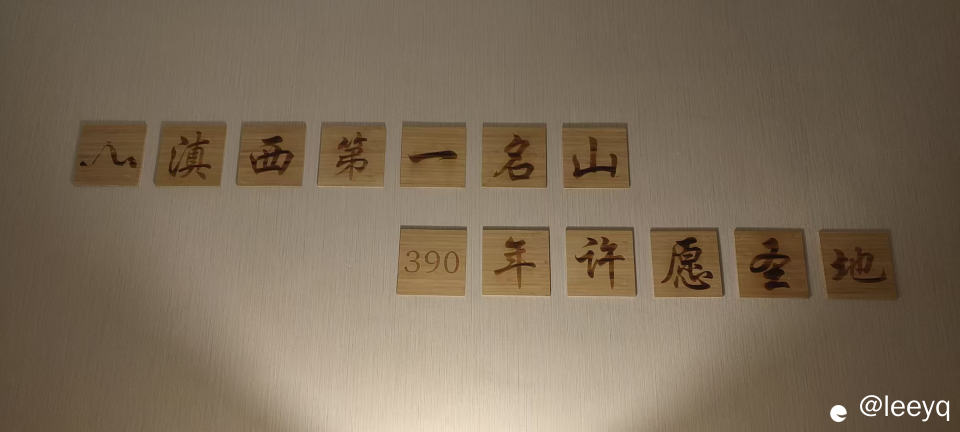 滇西第一名山
390年许愿圣地
@leeyq